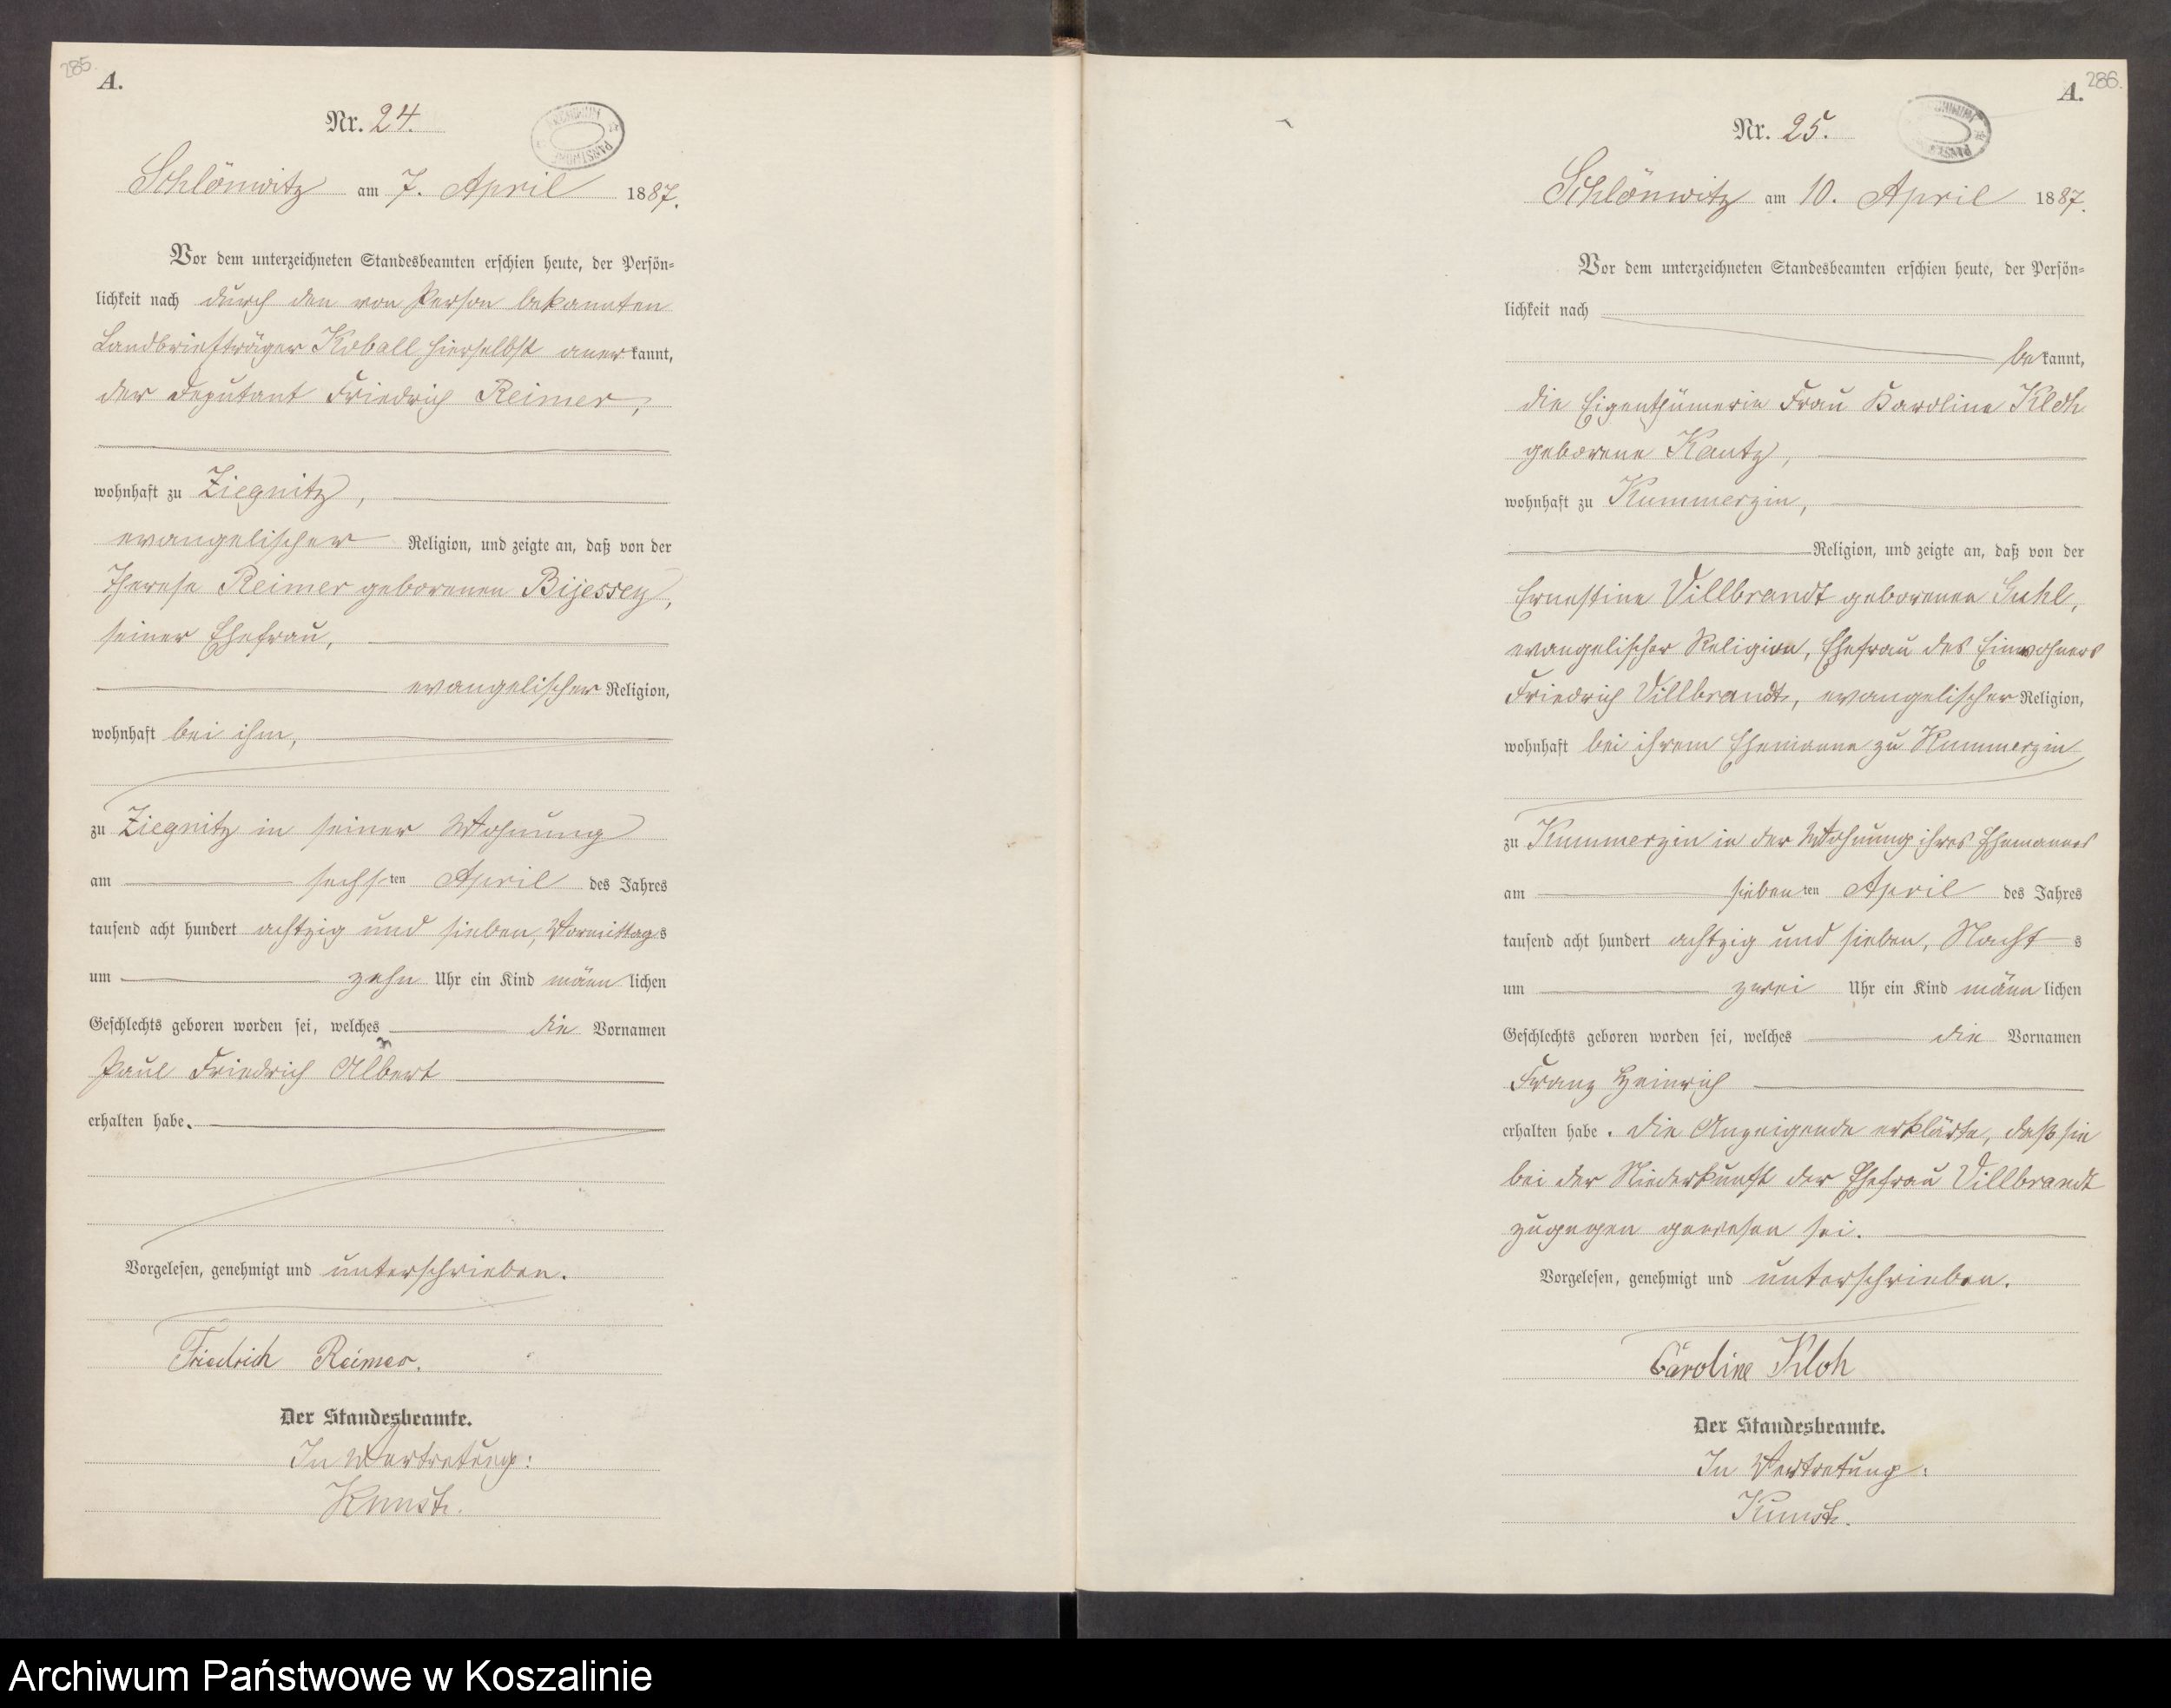 285.
A.
Nr. 24.
ARCHIWUM PAŃSTWOWE
Schlönwitz am 7. April 1887.
Vor dem unterzeichneten Standesbeamten erschien heute, der Persön=
lichkeit nach durch den von Person bekannten
Landbriefträger Koball hierselbst anerkannt,
der Deputant Friedrich Reimer,
wohnhaft zu Ziegnitz,
evangelischer Religion, und zeigte an, daß von der
Therese Reimer geborenen Bijessey,
seiner Ehefrau,
evangelischer Religion,
wohnhaft bei ihm,
zu Ziegnitz in seiner Wohnung
am sechsten April des Jahres
tausend acht hundert achtzig und sieben, Vormittags
um zehn Uhr ein Kind männlichen
Geschlechts geboren worden sei, welches die Vornamen
Paul Friedrich Albert
erhalten habe.
Vorgelesen, genehmigt und unterschrieben.
Friedrich Reimer.
Der Standesbeamte.
In Vertretung:
Kunst.
286.
A.
Nr. 25.
ARCHIWUM PAŃSTWOWE
Schlönwitz am 10. April 1887.
Vor dem unterzeichneten Standesbeamten erschien heute, der Persön=
lichkeit nach
bekannt,
die Eigenthümerin Frau Karoline Kloh
geborene Kautz,
wohnhaft zu Kummerzin,
Religion, und zeigte an, daß von der
Ernestine Villbrandt geborenen Guhl,
evangelischer Religion, Ehefrau des Einwohners
Friedrich Villbrandt, evangelischer Religion,
wohnhaft bei ihrem Ehemanne zu Kummerzin
zu Kummerzin in der Wohnung ihres Ehemannes
am siebenten April des Jahres
tausend acht hundert achtzig und sieben, Nachts
um zwei Uhr ein Kind männlichen
Geschlechts geboren worden sei, welches die Vornamen
Franz Heinrich
erhalten habe. Die Anzeigende erklärte, daß sie
bei der Niederkunft der Ehefrau Villbrandt
zugegen gewesen sei.
Vorgelesen, genehmigt und unterschrieben.
Caroline Kloh
Der Standesbeamte.
In Vertretung:
Kunst.
Archiwum Państwowe w Koszalinie